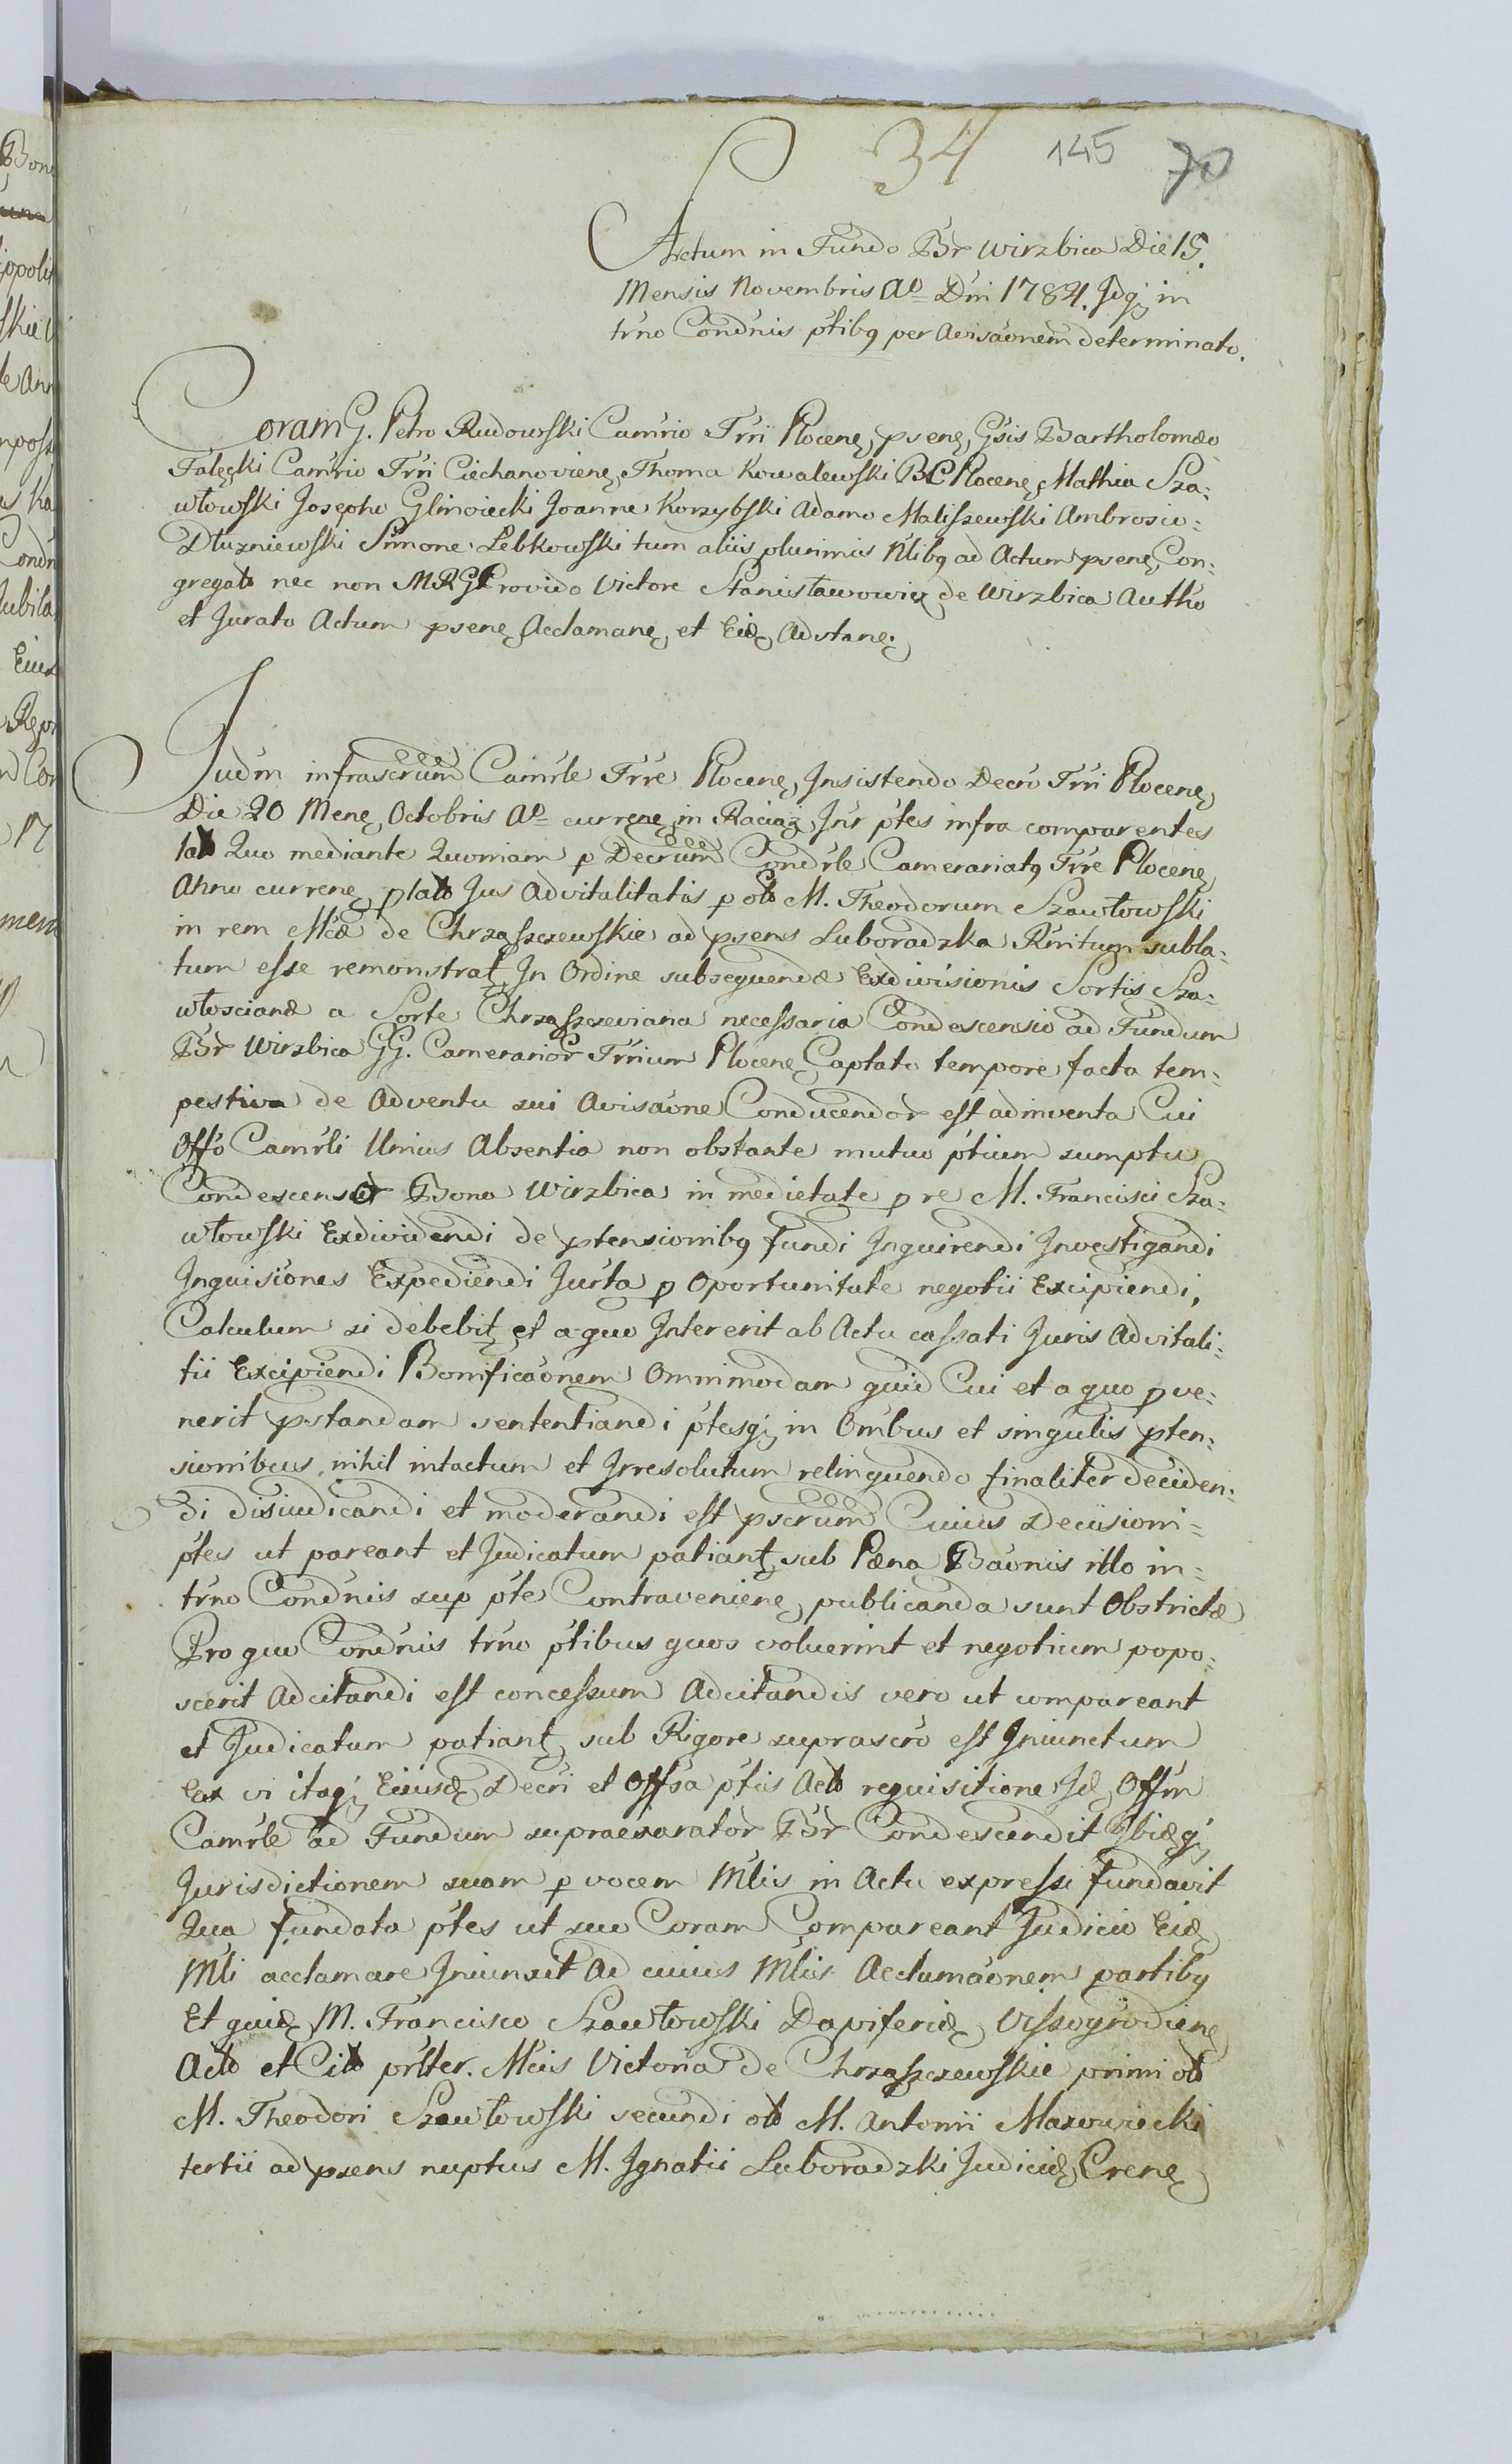 34 145 70
Actum in Fundo Br Wirzbica Die 15.
Mensis Novembris Ao Dni 1784. Idq in
trno Condnis ptibq per Avisaonem determinato.
Coram G. Petro Rudowski Camrio Trri Plocenę, psenę, Gsis Bartholomæo
Falęcki Camrio Trri Ciechanovienę, Thoma Kowalewski BC Plocenę, Mathia Sza-
włowski Josepho Glinoiecki Joanne Korzybski Adamo Maliszewski Ambrosio
Dłuzniewski Simone Lebkowski tum aliis plurimis Nlibq ad Actum psenę, Con-
gregatis nec non MRG Provido Victore Stanisławowicz de Wirzbica Autho
et Jurato Actum psenę, Acclamanę, et Eidę, Adstanę.
Judm infrascrum Camrle Trre Plocenę, Insistendo Decro Trri Plocenę,
Die 20 Menę, Octobris Ao currenę, in Raciąz, Inr ptes infra comparentes
lato Quo mediante Quoniam p Decrum Condrle Camerariatq Trre Plocenę,
Anno currenę, plato Jus Advitalitatis p olo M. Theodorum Szawłowski
in rem Mcæ de Chrząszczewskie ad psens Luboradzka Rnitum subla-
tum esse remonstratȩ, In Ordine subsequendæ Exdivisionis Sortis Sza-
włoscianæ a Sorte Chrząszczeviana necessaria Condescensio ad Fundum
Br Wirzbica GG. Camerarior Trrium Plocenę, Captato tempore facta tem-
pestiva de Adventu sui Avisaone Conducendor est adinventa Cui
Offo Camrli Unius Absentia non obstante mutuo ptium sumptu
Condescensor Bona Wirzbica in medietate p re M. Francisci Sza-
włowski Exdividendi de ptensionibq fundi Inquirendi Investigandi
Inquisiones Expediendi Jurta p Oportunitate negotii Excipiendi,
Calculum si debebitȩ, et a quo Intererit ab Actu cassati Juris Advitali-
tii Excipiendi Bonificaonem Omnimodam quid Cui et a quo pve-
nerit pstandam sententiandi ptesq in Omibus et singulis pten-
sionibus nihil intactum et Irresolutum relinquendo finaliter deciden-
di disiudicandi et moderandi est pscrum Cuius Decisioni
ptes ut pareant et Judicatum patiantȩ, sub Pæna Baonis illo in
trno Condnis sup pte Contravenienę, publicanda sunt Obstrictæ
Pro quo Condnis trno ptibus quos voluerint et negotium popo-
scerit Adcitandi est concessum Adcitandis vero ut compareant
et Judicatum patiantȩ, sub Rigore suprascro est Iniunctum
Ex vi itaq Eiusdę, Decri et Offsa ptis Acto requisitione Idę, Offm
Camrle ad Fundum supraexarator Br Condescendit Ibidęq
Jurisdictionem suam p vocem Mlis in Actu expressi fundavit
Qua fundata ptes ut suo Coram Compareant Judicio Eidę,
Mli acclamare Iniunxit Ad cuius Mlis Acclamaonem partibq
Et quidę, M. Francisco Szawłowski Dapiferidę, Vissogrodienę,
Acto et Cito prlter. Mcis Victoria de Chrząszczewskie primi olo
M. Theodori Szawłowski secundi olo M. Antonii Mazowiecki
tertii ad psens nuptus M. Ignatii Luboradzki Judicidę, Crenę,